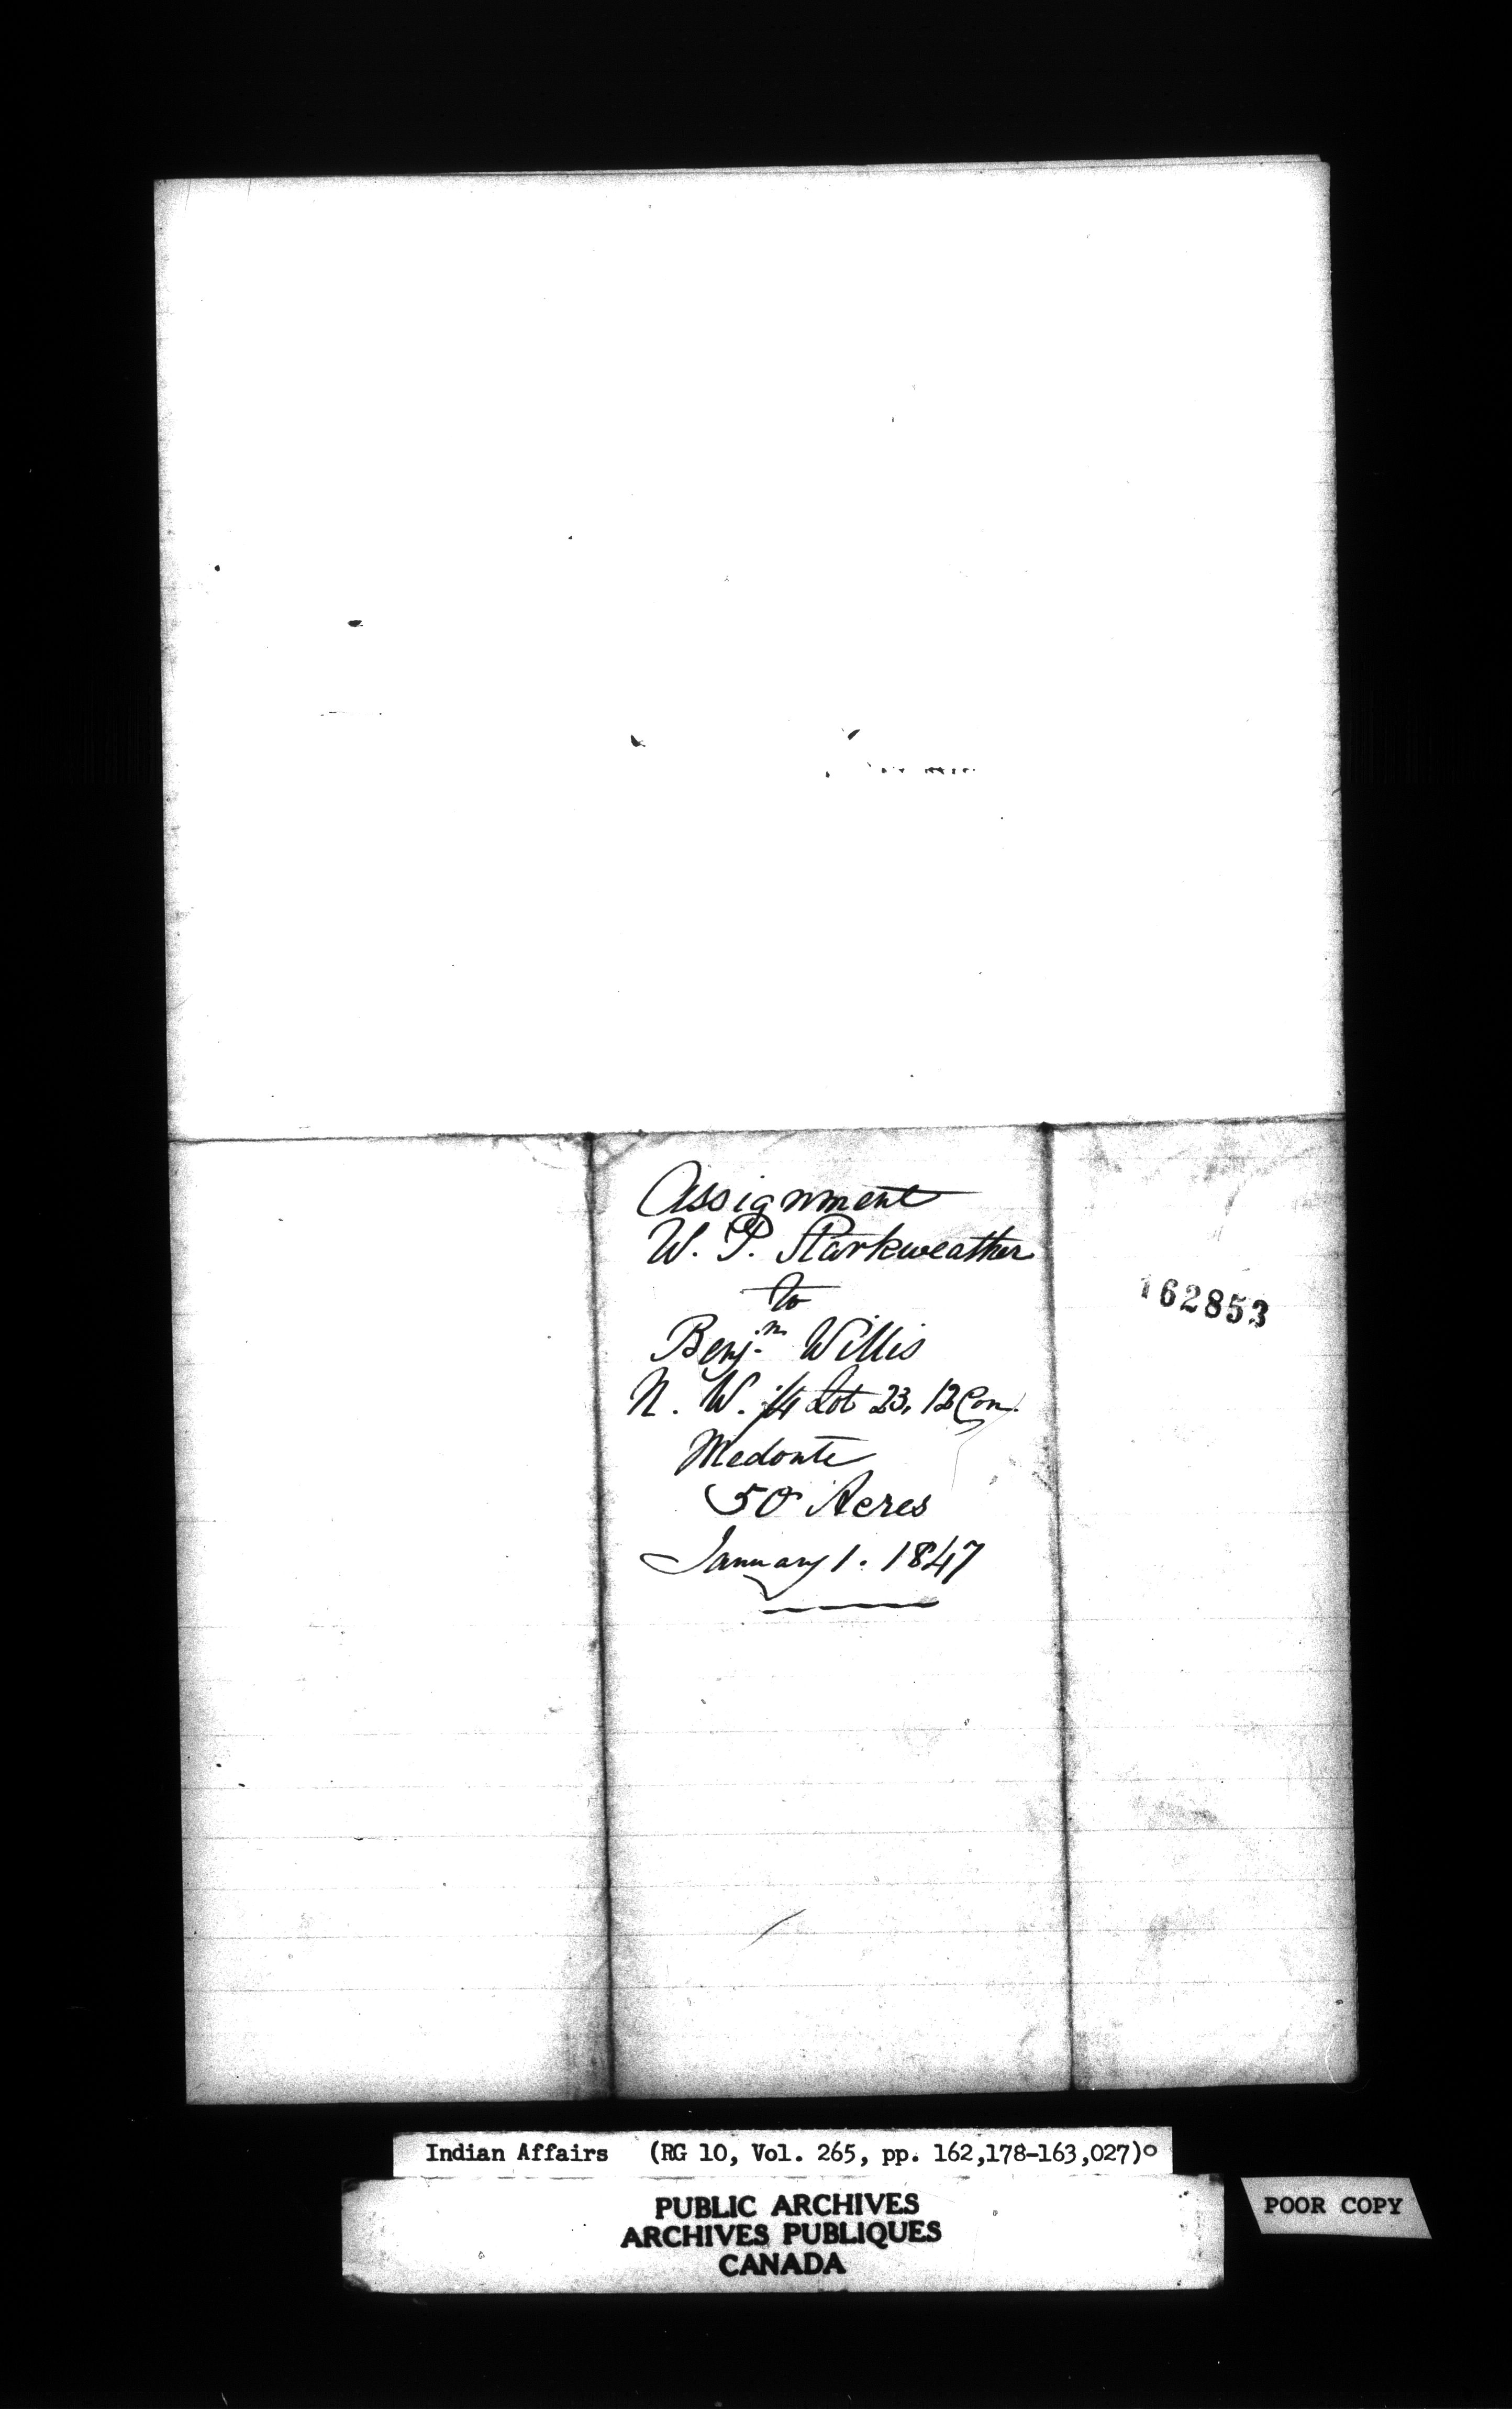 Assignment
W. P. Starkweather
to
Benj.n Willis
N. W. 1/4 Lot 23, 12 Con.
Medonte
50 Acres
January 1. 1847
162853
Indian Affairs (RG 10, Vol. 265, pp. 162,178-163,027)o
PUBLIC ARCHIVES
ARCHIVES PUBLIQUES
CANADA
POOR COPY